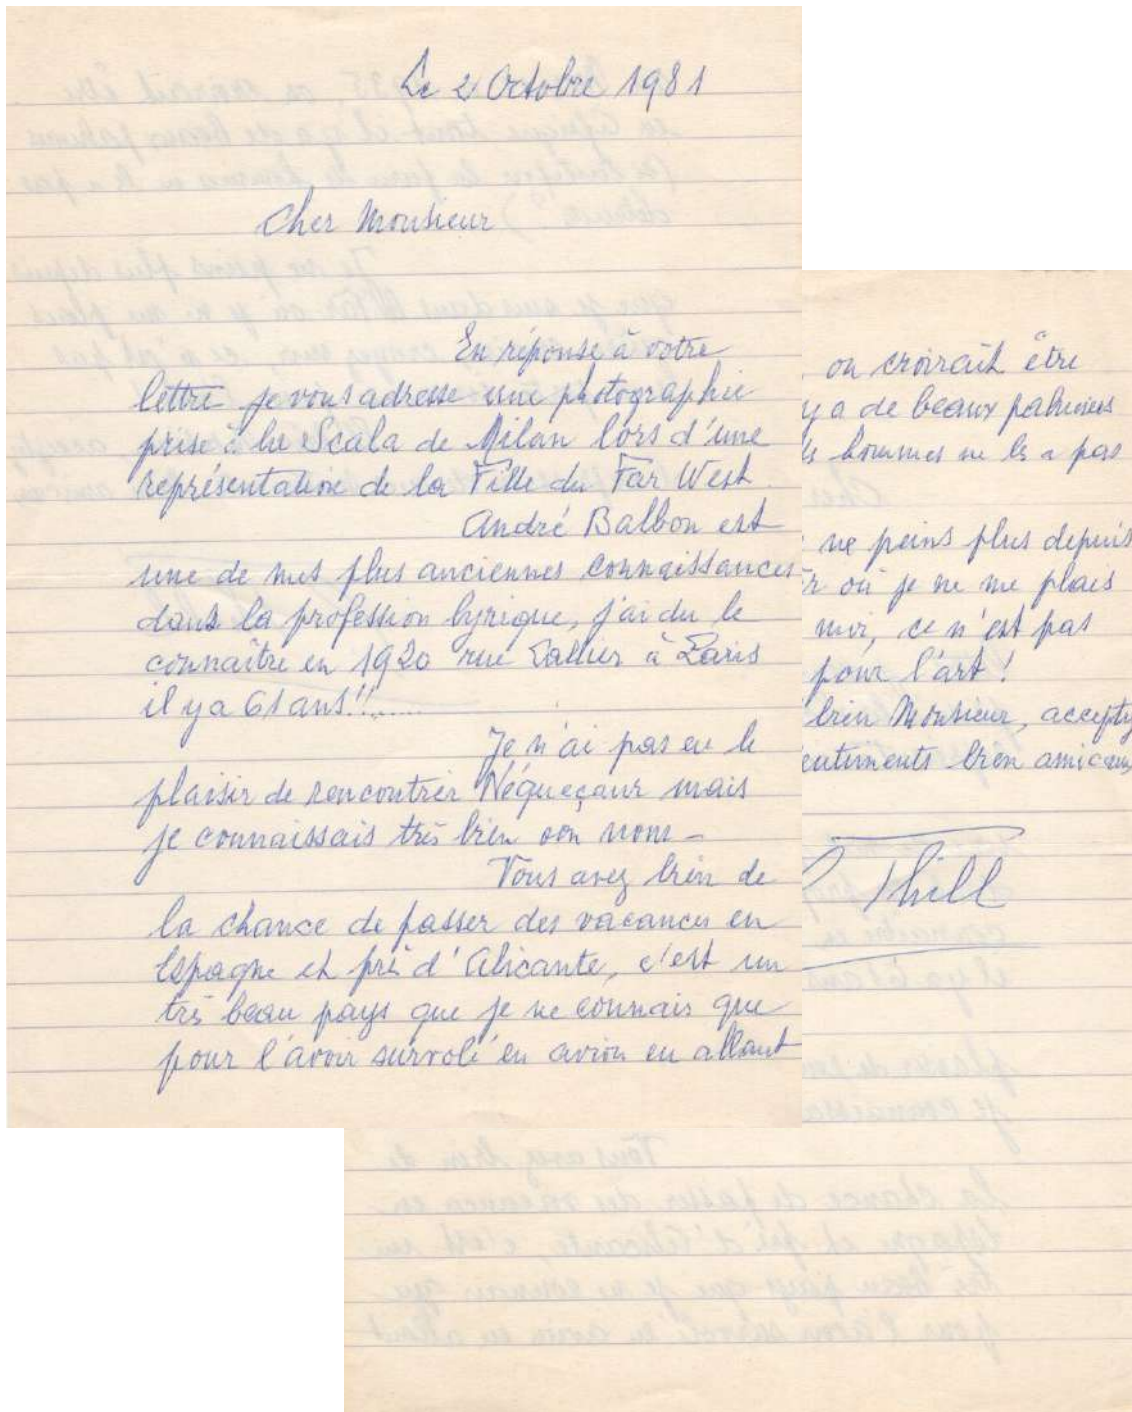 Le 2 Octobre 1981
Cher Monsieur
En réponse à votre
lettre je vous adresse une photographie
prise à la Scala de Milan lors d'une
représentation de la Fille du Far West
André Balbon est
une de mes plus anciennes connaissances
dans la profession lyrique, j'ai du le
connaître en 1920 rue à Paris
il y a 61 ans!!......
Je n'ai pas eu le
plaisir de rencontrer mais
je connaissais très bien son nom -
Vous avez bien de
la chance de passer des vacances en
Espagne et près d'Alicante, c'est un
très beau pays que je ne connais que
pour l'avoir survolé en avion en allant
on croirait être
y a de beaux palmiers
hommes ne les a pas
ne peins plus depuis
où je ne me plais
ce n'est pas
pour l'art !
bien Monsieur, acceptez
entiments bien amicaux
Thill